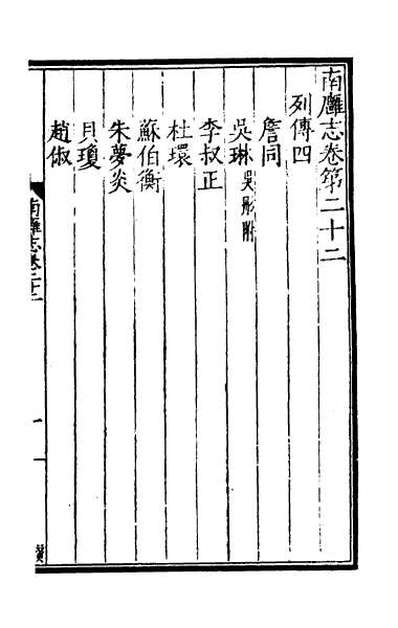 南廱志卷第二十二
列傳四
詹同
吳琳 吳彤附
李叔正
杜環
蘇伯衡
朱夢炎
貝瓊
趙俶
南廱志卷二十二
一